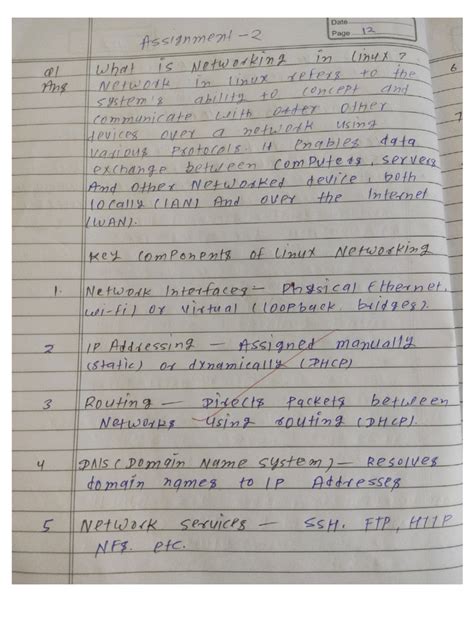 Date
Page 12
Assignment-2
Q1 What is Networking in linux?
Ans Network in linux refers to the
system's ability to concept and
communicate with other other
devices over a network using
various Protocols. It enables data
exchange between computers, servers
And other Networked device, both
locally (LAN) And over the Internet
(WAN).
Key components of linux Networking
1. Network Interfaces- Physical Ethernet,
wi-fi) or virtual (loopback, bridges).
2 IP Addressing - Assigned manually
(static) or dynamically (DHCP)
3 Routing - Directs Packets between
Networks - Using routing (DHCP).
4 DNS (Domain Name System) - Resolves
domain names to IP Addresses
5 Network services - SSH. FTP, HTTP
NFS. etc.
6
7